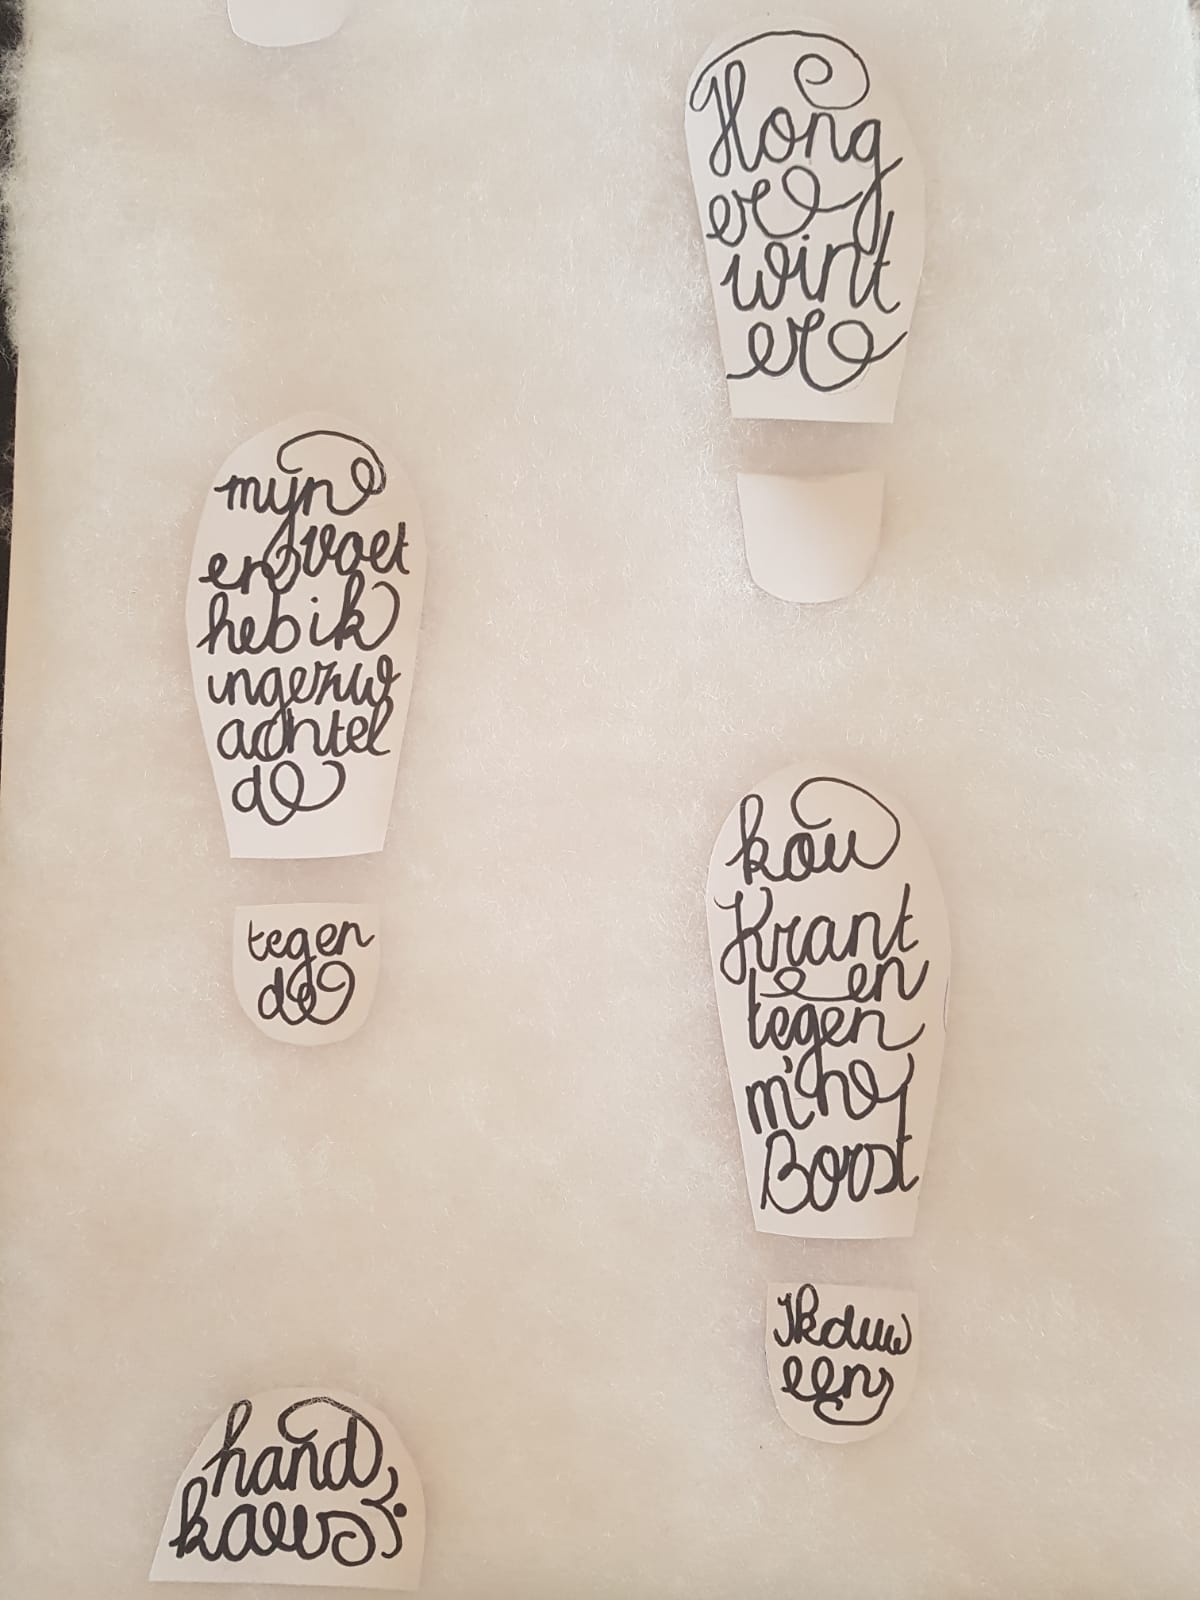 Hong
er
wint
er
mijn
en voet
heb ik
ingezw
achtel
d
tegen
de
kou
Krant
en
tegen
m'n
Borst
Ik duw
een
hand